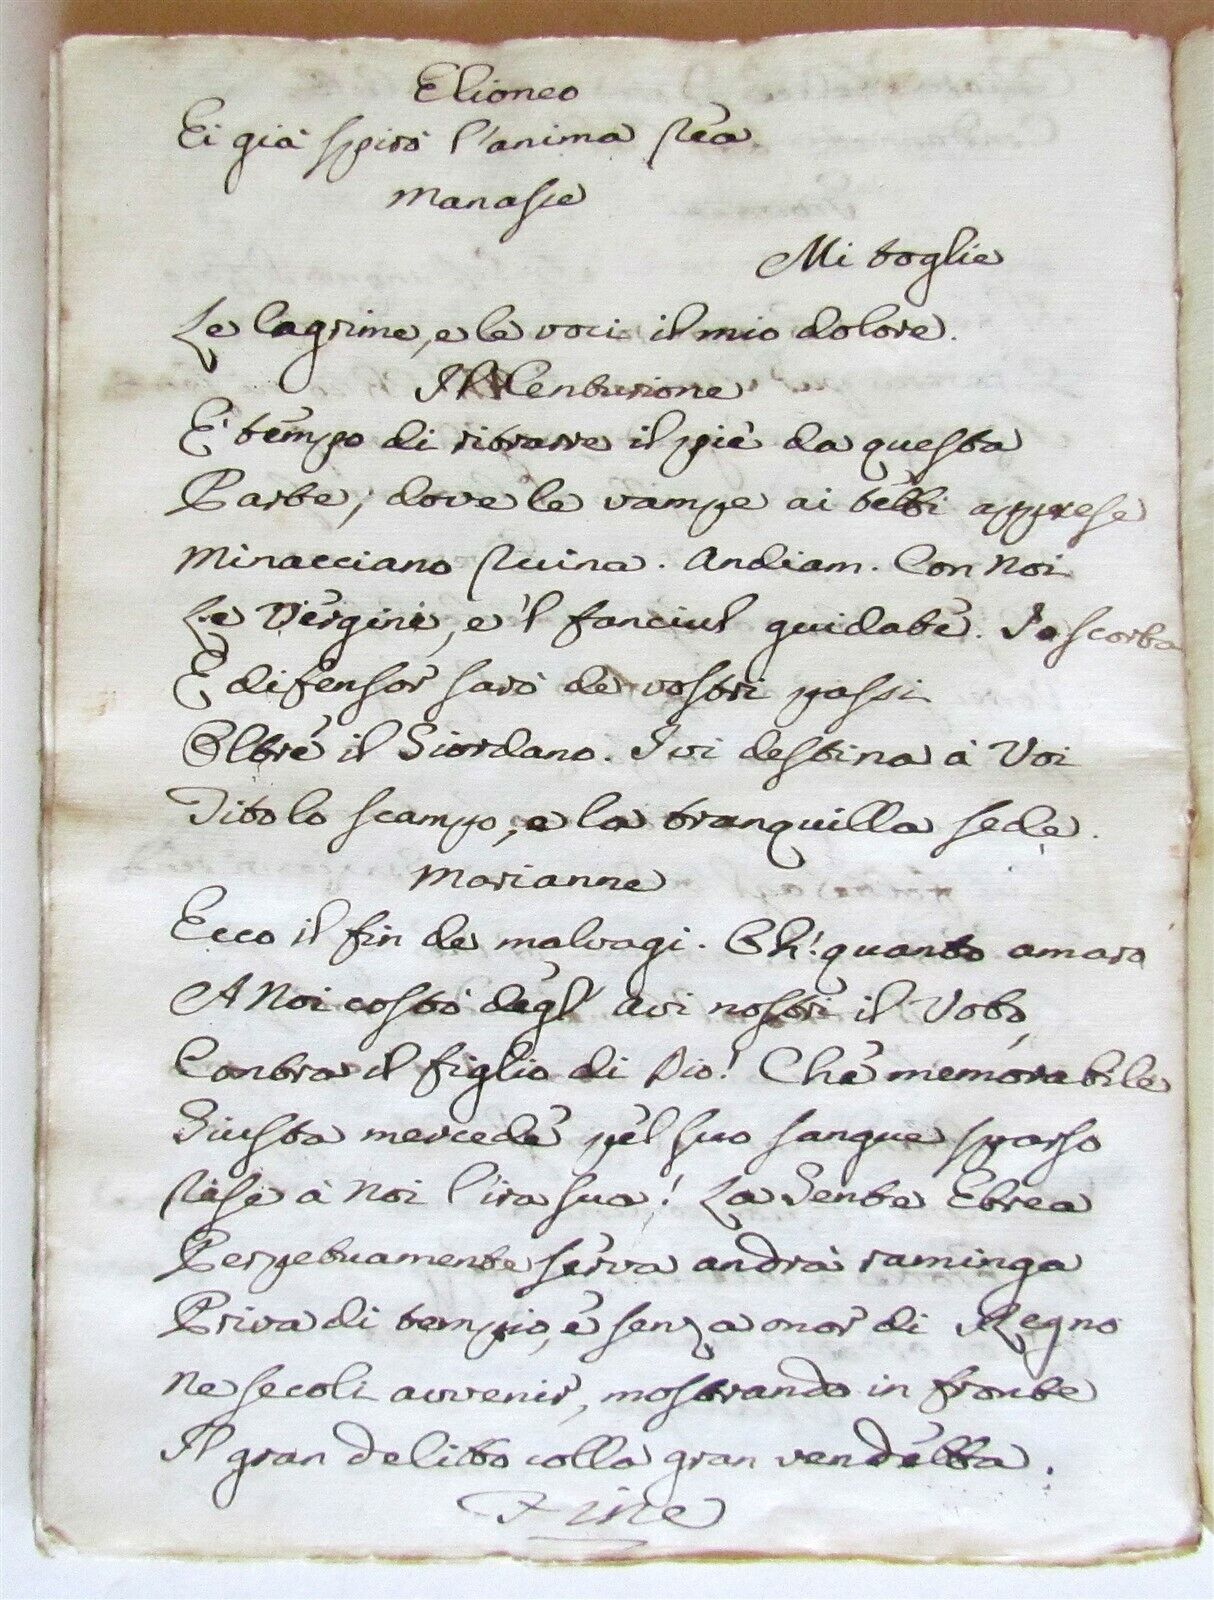 Elioneo
Ei già spirò l'anima rea
Manasse
Mi toglie
Le lagrime, e le voci il mio dolore.
Il Centurione
E' tempo di ritrarre il piè da questa
Parte, dove le vampe ai tetti apprese
Minacciano ruina. Andiam. Con Noi
Le Vergini, e 'l fanciul guidate. Io scorta
E difensor sarò de vostri passi
Oltre il Giordano. Ivi destina à Voi
Tito lo scampo, e la tranquilla sede.
Marianne
Ecco il fin de malvagi. Oh! quanto amaro
A Noi costò degl' avi nostri il Voto,
Contra il figlio di Dio! Che memorabile
Giusta mercede pel suo sangue sparso
Rese à Noi l'ira sua! La Gente Ebrea
Perpetuamente serva andrà raminga
Priva di tempio, e senza onor di Regno
Ne secoli avvenir, mostrando in fronte
Il gran delitto colla gran vendetta.
Fine